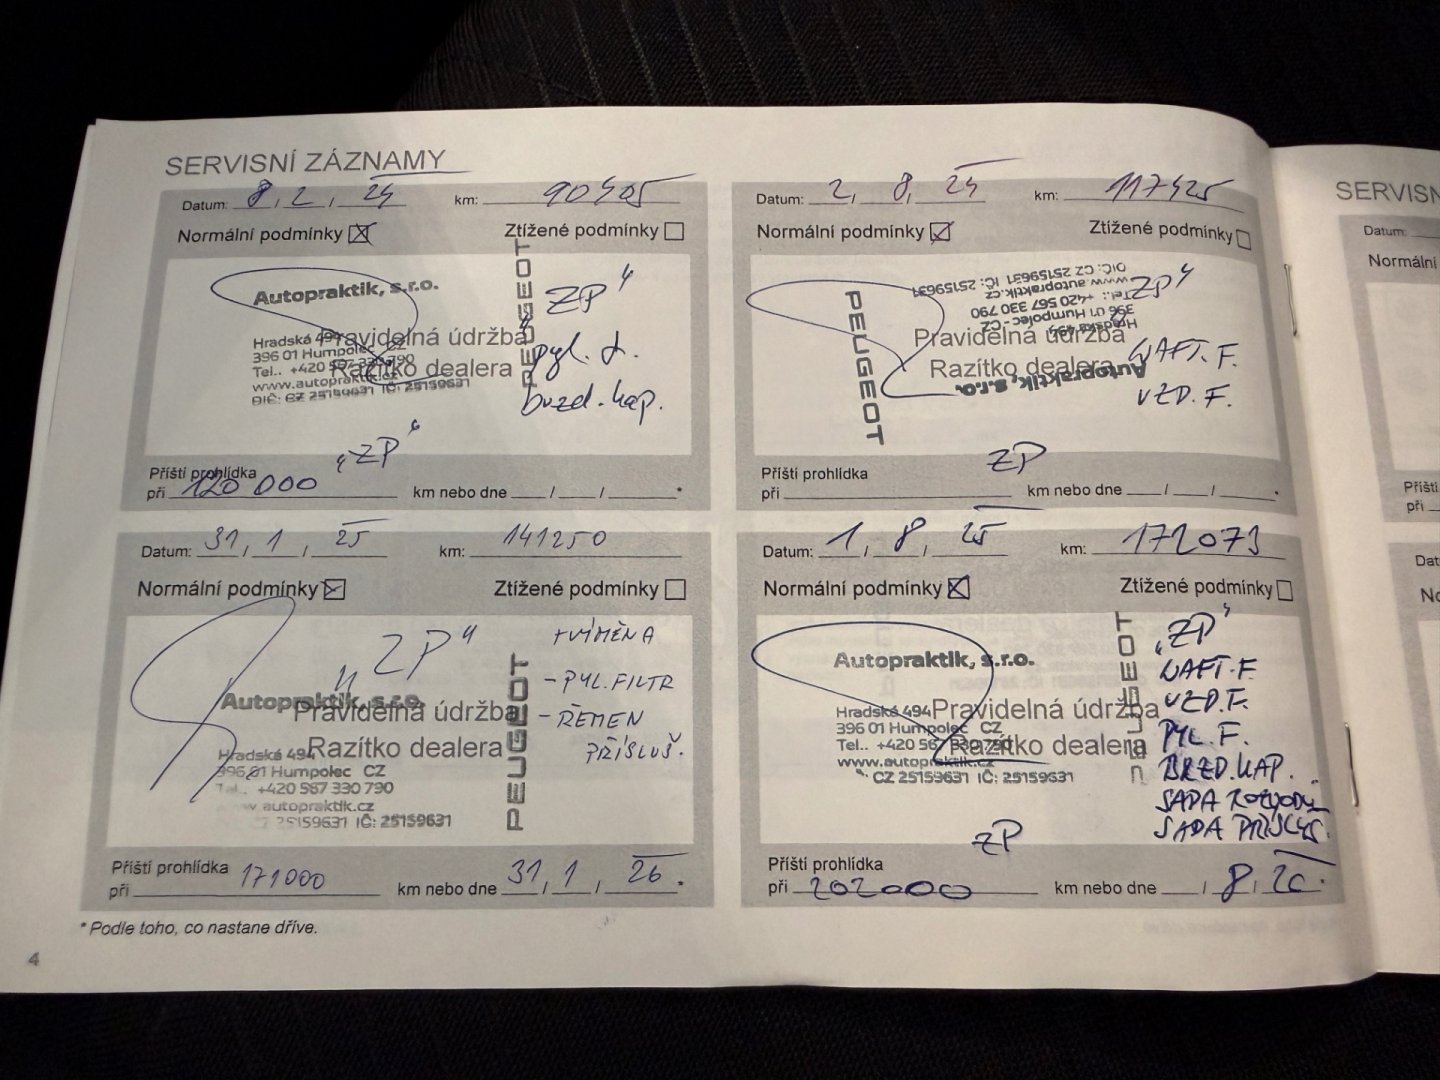 SERVISNÍ ZÁZNAMY
Datum: 8, 2, 24 km: 90405
Normální podmínky Ztížené podmínky
Autopraktik, s.r.o.
Hradská 494
396 01 Humpolec CZ
Tel.. +420 567 330 790
www.autopraktik.cz
DIČ: CZ 25159631 IČ: 25159631
PEUGEOT
Pravidelná údržba
Razítko dealera
„ZP“
pyl. f.
brzd. kap.
„ZP“
Příští prohlídka
při 120 000 km nebo dne / / *
Datum: 2, 8, 24 km: 117425
Normální podmínky Ztížené podmínky
PEUGEOT
Autopraktik, s.r.o.
Hradská 494
396 01 Humpolec - CZ
Tel.: +420 567 330 790
www.autopraktik.cz
DIČ: CZ 25159631 IČ: 25159631
Pravidelná údržba
Razítko dealera
„ZP“
NAFT. F.
VZD. F.
ZP
Příští prohlídka
při km nebo dne / / *
Datum: 31 / 1 / 25 km: 141250
Normální podmínky Ztížené podmínky
Autopraktik, s.r.o.
Hradská 494
396 01 Humpolec CZ
+420 567 330 790
www.autopraktik.cz
CZ 25159631 IČ: 25159631
PEUGEOT
Pravidelná údržba
Razítko dealera
„ZP“
+VÝMĚNA
- PYL. FILTR
- ŘEMEN
PŘÍSLUŠ.
Příští prohlídka
při 171000 km nebo dne 31 / 1 / 26 *
Datum: 1 / 8 / 25 km: 172073
Normální podmínky Ztížené podmínky
Autopraktik, s.r.o.
Hradská 494
396 01 Humpolec CZ
Tel.. +420 567 330 790
www.autopraktik.cz
CZ 25159631 IČ: 25159631
PEUGEOT
Pravidelná údržba
Razítko dealera
„ZP“
NAFT. F.
VZD. F.
PYL. F.
BRZD. KAP.
SADA ROZVODU
SADA PŘÍSLUŠ.
ZP
Příští prohlídka
při 202000 km nebo dne / 8 / 26 *
* Podle toho, co nastane dříve.
4
SERVISN
Datum:
Normální
Příští
při
Dat
No